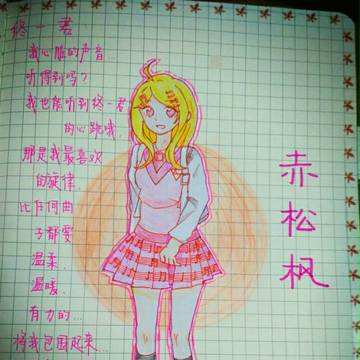 终一君
我心脏的声音
听得到吗？
我也能听到终一君
的心跳哦
那是我最喜欢
的旋律.
比任何曲
子都要
温柔.
温暖.
有力的...
将我包围起来...
赤松枫